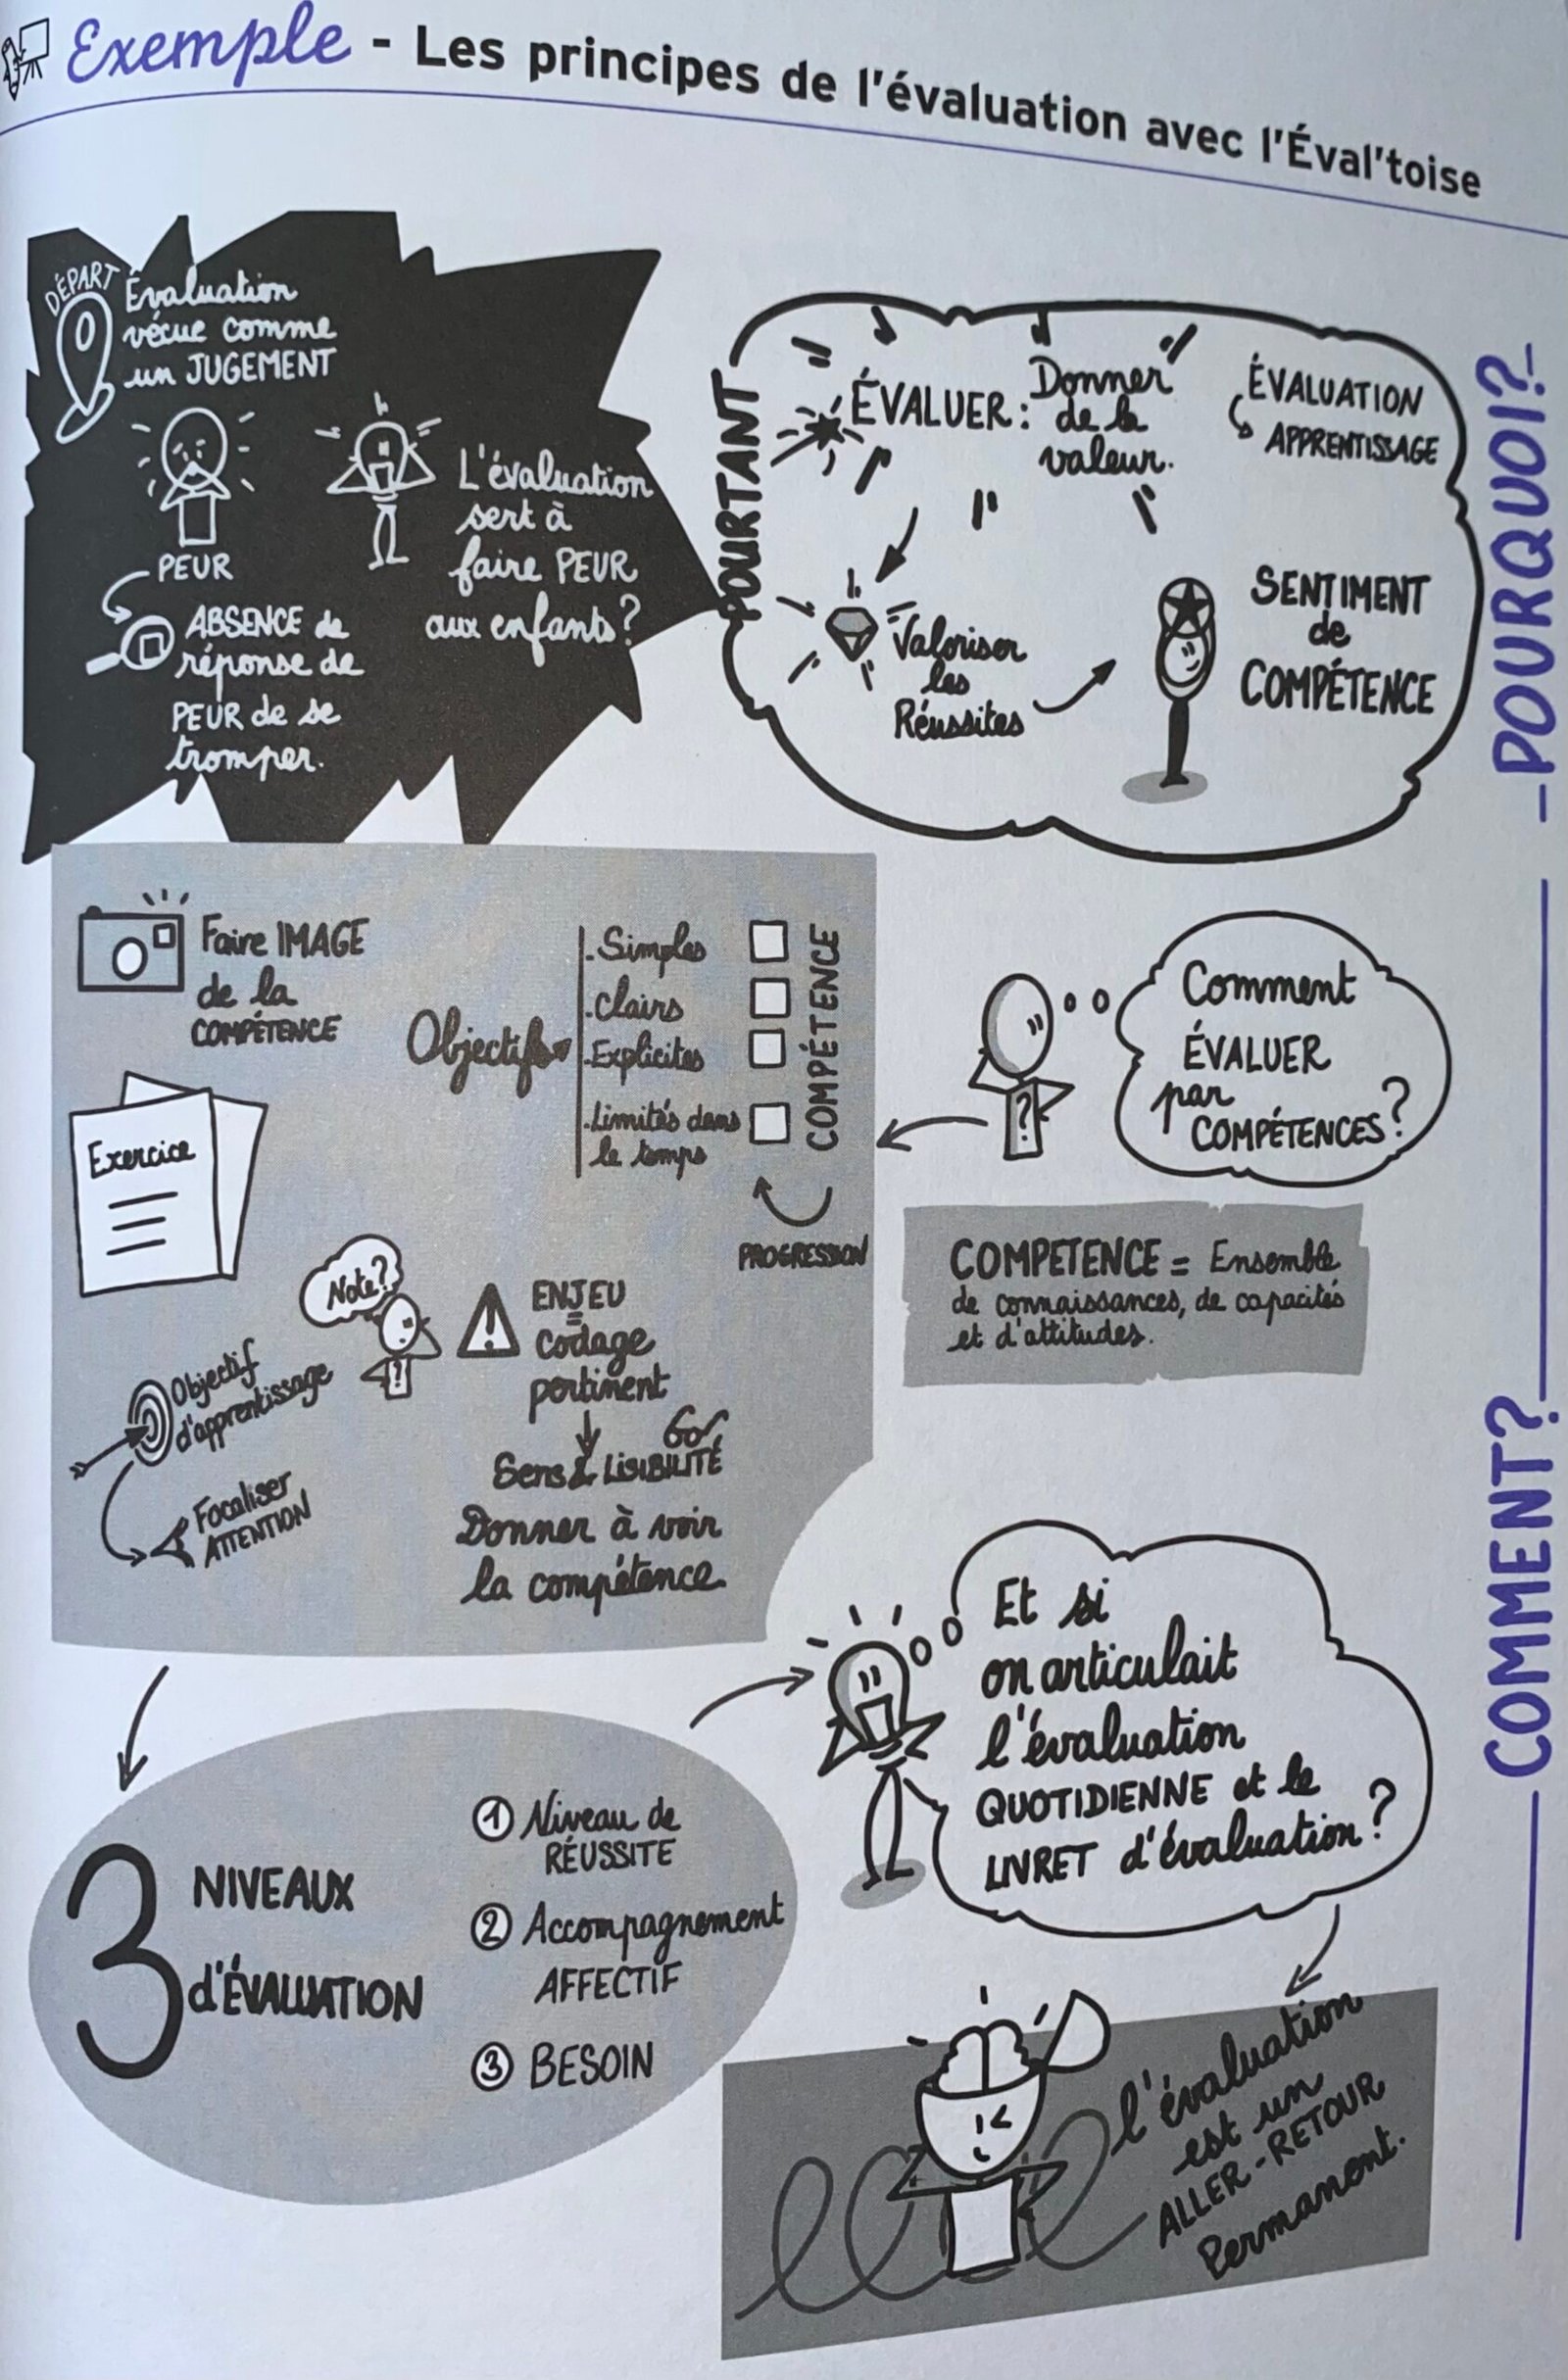 Exemple - Les principes de l'évaluation avec l'Éval'toise
DÉPART
Évaluation
vécue comme
un JUGEMENT
PEUR
ABSENCE de
réponse de
PEUR de se
tromper.
L'évaluation
sert à
faire PEUR
aux enfants?
POURTANT
ÉVALUER:
Donner
de la
valeur.
ÉVALUATION
APPRENTISSAGE
Valoriser
les
Réussites
SENTIMENT
de
COMPÉTENCE
POURQUOI?
Faire IMAGE
de la
COMPÉTENCE
Objectifs
.Simples
.Clairs
.Explicites
.Limités dans
le temps
COMPÉTENCE
PROGRESSION
Exercice
Note?
?
Objectif
d'apprentissage
Focaliser
ATTENTION
ENJEU
=
Codage
pertinent
Sens & LISIBILITÉ
Donner à voir
la compétence
Comment
ÉVALUER
par
COMPÉTENCES?
?
COMPETENCE = Ensemble
de connaissances, de capacités
et d'attitudes.
COMMENT?
3
NIVEAUX
d'ÉVALUATION
① Niveau de
RÉUSSITE
② Accompagnement
AFFECTIF
③ BESOIN
Et si
on articulait
l'évaluation
QUOTIDIENNE et le
LIVRET d'évaluation?
l'évaluation
est un
ALLER-RETOUR
Permanent.